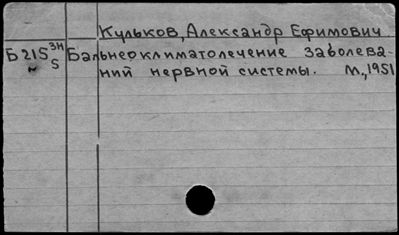 Кульков, Александр Ефимович
Б215 3Н/5 Бальнеоклиматолечение заболева-
ний нервной системы. М., 1951